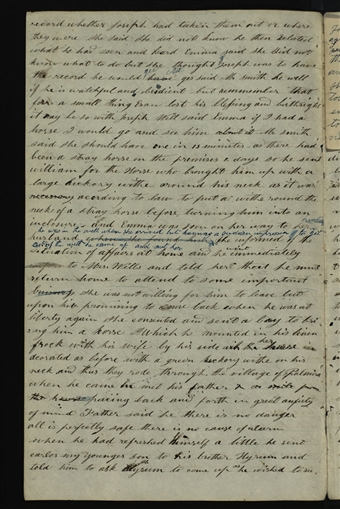 record whether Joseph had taken them out or where
they were she said she did not know he then related
what he had seen and heard Emma said she did not
know what to do but she thought if Joseph was to have
the record he would have it yes said Mr Smith he will
if he is watchful and obedient but remember that
for a small thing Esau lost his blessing and birthright
it may be so with Joseph Well said Emma if I had a
horse I would go and see him Mr Smith
said she should have one in 15 minutes as there had
been a stray horse on the premises 2 days so he sent
william for the Horse who brought him up with a
large hickory withe around his neck as it was
necessary acording to law to put a withe round the
neck of a stray horse before turning him into an
inclosure and Emma was soon on her way to her
husband she informed him of the
situation of affairs at home and he immediately
went to Mrs Wells and told her that he must
return home to attend to some important
buisness she was not willing for him to leave but
upon his promising to come back when he was at
liberty again she consented and sent a boy to bri
ng him a horse Which he mounted in his linen
frock with his wife by his side on her horse
decorated as before with a green hickory withe on his
neck and thus they rode through the village of Palmira
when he came he met his father a mile from
the house pacing back and forth in great anxiety
of mind Father said he there is no danger
all is perfectly safe there is no cause of alarm
when he had refreshed himself a little he sent
carlos my younger son to his brother Hyrum and
told him to ask Hyrum to come up he wished to